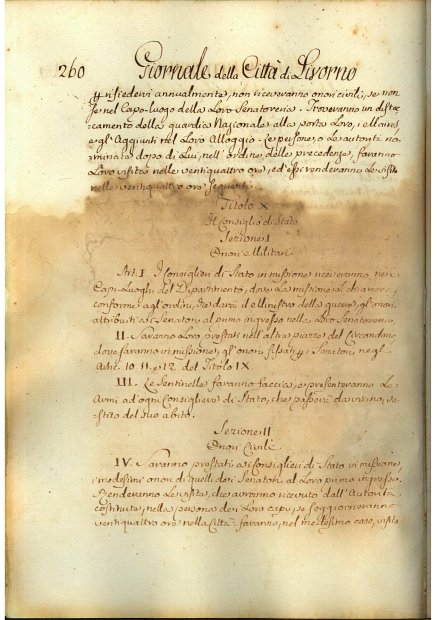 260 Giornale della Città di Livorno
risiedervi annualmente, non riceveranno onori civili, se non
se nel Capo-luogo della Loro Senatoreria. Troveranno un distac=
camento della guardia Nazionale alla porta Loro, i
e gl' Aggiunti nel Loro Alloggio. Le persone, o le autorità no=
minate dopo di Lui, nell' ordine delle precedenze, faranno
Loro visita nelle ventiquattro ore, ed essi renderanno Le visite
nelle ventiquattro ore seguenti.
Titolo X.
Il Consiglio di Stato
Sezione I
Onori Militari
Art. I. I Consiglieri di Stato in missione riceveranno nei
Capi-Luoghi del Dipartimento, dove La missione li chiamerà,
conforme agl' ordini, che darà il Ministro della guerra, gl' onori
attribuiti ai Senatori, al primo ingresso nella Loro Senatoreria.
II. Saranno Loro prestati nell' altre piazze del Circondario
dove saranno in missione, gl' onori fissati Senatori, negl'
Art. 10. 11. e 12. del Titolo IX
III. Le Sentinelle faranno faccia, e presenteranno Le
Armi ad ogni Consigliere di Stato, che passerà davanti, ve=
stito del suo abito.
Sezione II
Onori Civili
IV. Saranno prestati ai Consiglieri di Stato in missione,
i medesimi onori di quelli dei Senatori al Loro primo ingresso.
Renderanno Le visite, che avranno ricevuto dall' Autorità
costituite, nella persona dei Loro capi, se soggiorneranno
ventiquattro ore nella Città: faranno, nel medesimo caso, visita